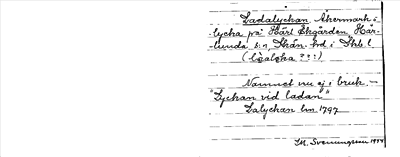 Ladalyckan Åkermark i
lycka på Härl Ekgården Här-
lunda sn, Skån. hd i Skb l
( ? ? ! )
Namnet nu ej i bruk.
"Lyckan vid ladan"
Dalyckan lm. 1797
M. Svenungsson 1954